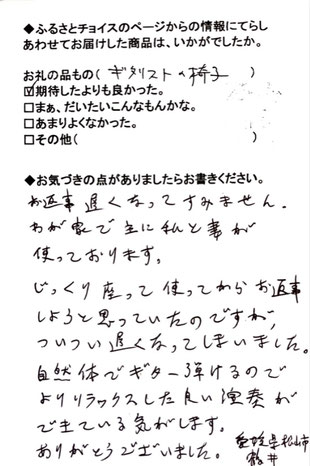 ◆ふるさとチョイスのページからの情報にてらし
あわせてお届けした商品は、いかがでしたか。
お礼の品もの(ギタリストの椅子)
☑期待したよりも良かった。
□まぁ、だいたいこんなもんかな。
□あまりよくなかった。
□その他( )
◆お気づきの点がありましたらお書きください。
お返事遅くなってすみません.
わが家で主に私と妻が
使っております。
じっくり座って使ってからお返事
しようと思っていたのですが,
ついつい遅くなってしまいました。
自然体でギター弾けるので
よりリラックスした良い演奏が
できている気がします。
ありがとうございました。
愛媛県松山市